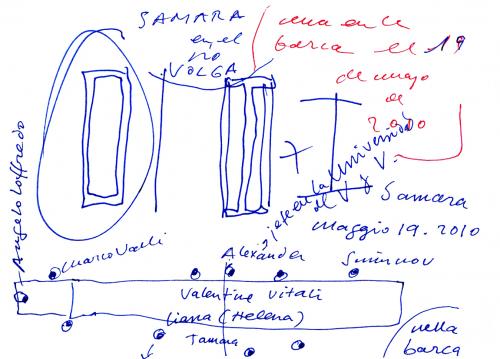 SAMARA
en el
rio
VOLGA
cena en la
barca el 19
de mayo
de
2010
Angelo Loffredo
jefe en la Universidad
de V y V.
Samara
maggio 19. 2010
Marco Valli
Alexánder
Smirnov
Valentine Vitali
Liana (Helena)
Tamara
nella
barca